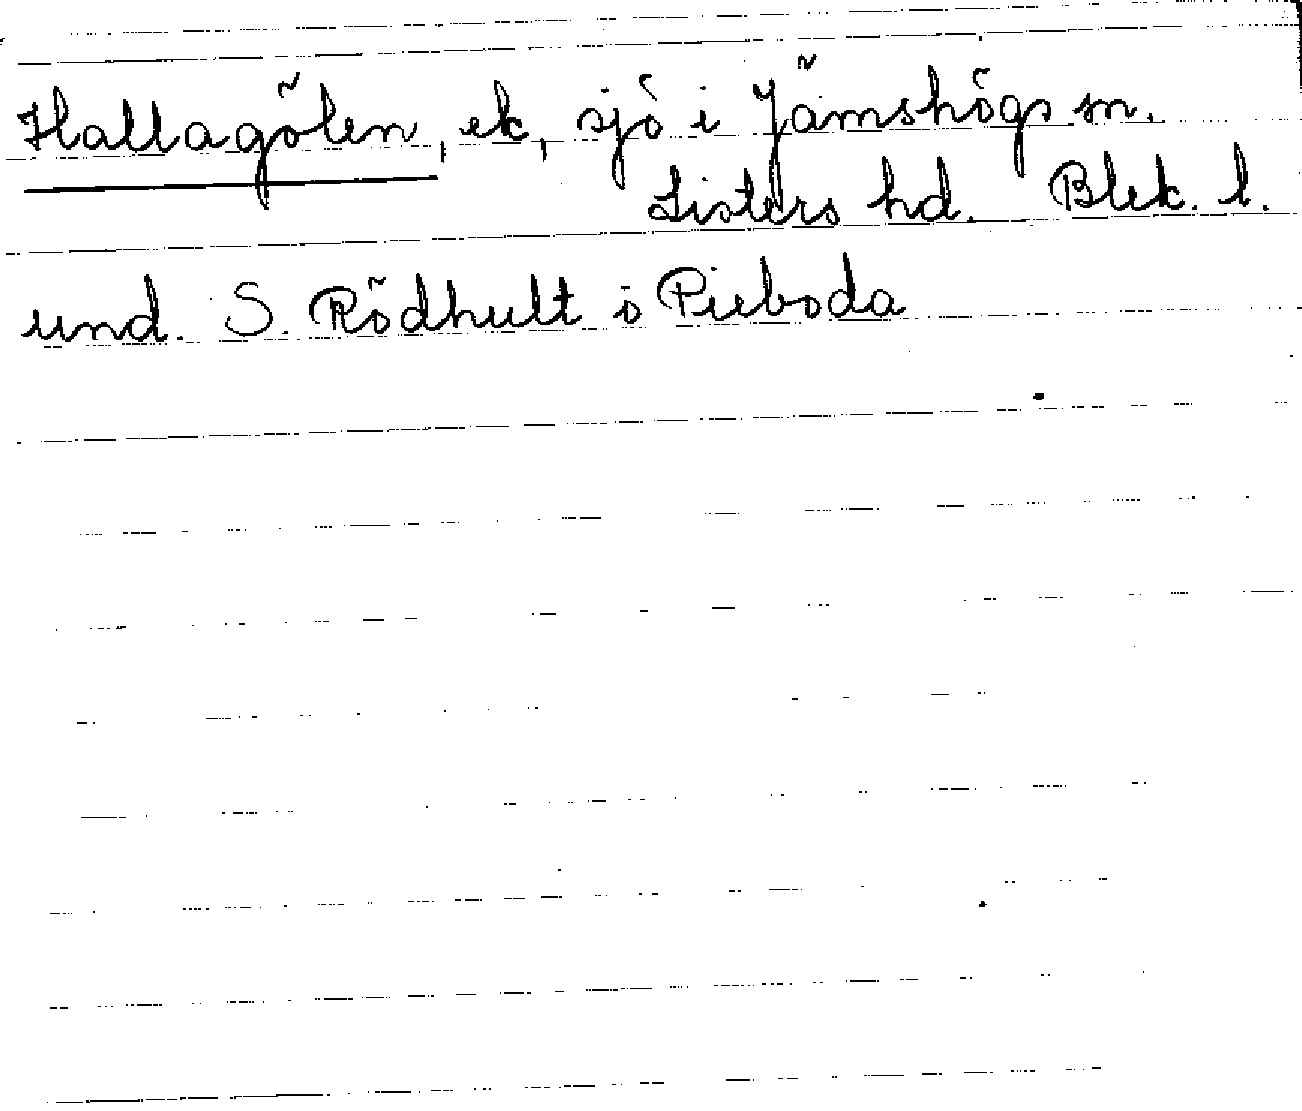 Hallagölen, ek, sjö i Jämshögs sn.
Listers hd. Blek. l.
und. S. Rödhult o Pieboda